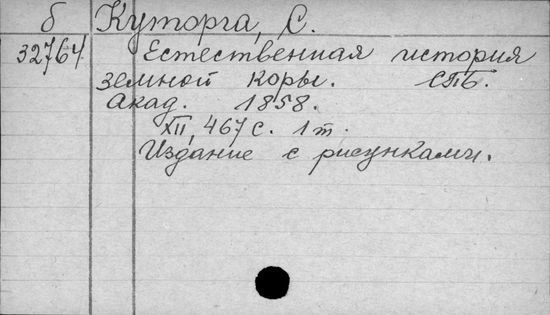 б Куторга, С.
32764 Естественная история
земной коры. СПБ.
Акад. 1858.
XII, 467 с. 1 т.
Издание с рисунками.